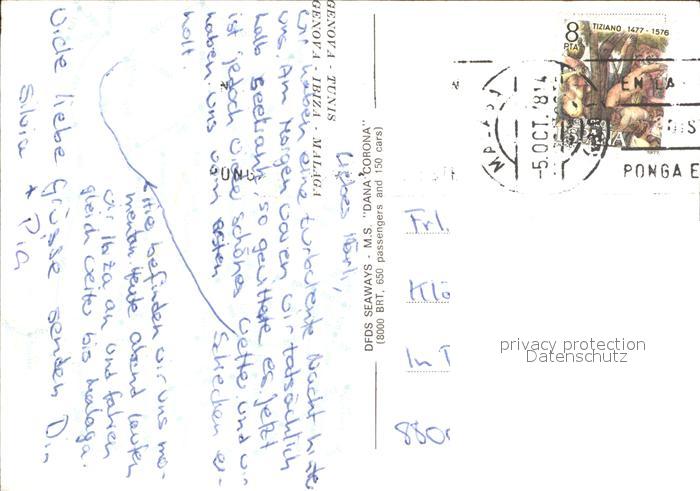 GENOVA - TUNIS
GENOVA - IBIZA - MALAGA
DFDS SEAWAYS - M.S. "DANA CORONA"
(8000 BRT, 650 passengers and 150 cars)
wir haben eine turbulente Nacht hinter
uns. Am Morgen waren wir tatsächlich
halb seekrank, so gewitterte es. Jetzt
ist jedoch wieder schönes Wetter und wir
haben uns vom ersten Schrecken er-
holt.
Hier befinden wir uns mo-
mentan. Heute abend laufen
wir Ibiza an und fahren
gleich weiter bis Malaga.
Viele liebe Grüsse senden Dir
Silvia + Pia
8 PTA
TIZIANO 1477 - 1576
-5.OCT.78
EN LA
DIS
PONGA E
Frl.
Klö
In T
880
privacy protection
Datenschutz